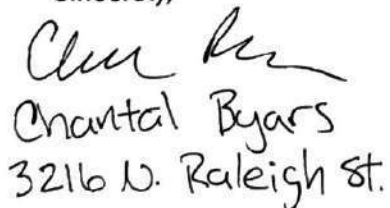 Sincerely,
Chantal Byars
3216 N. Raleigh St.